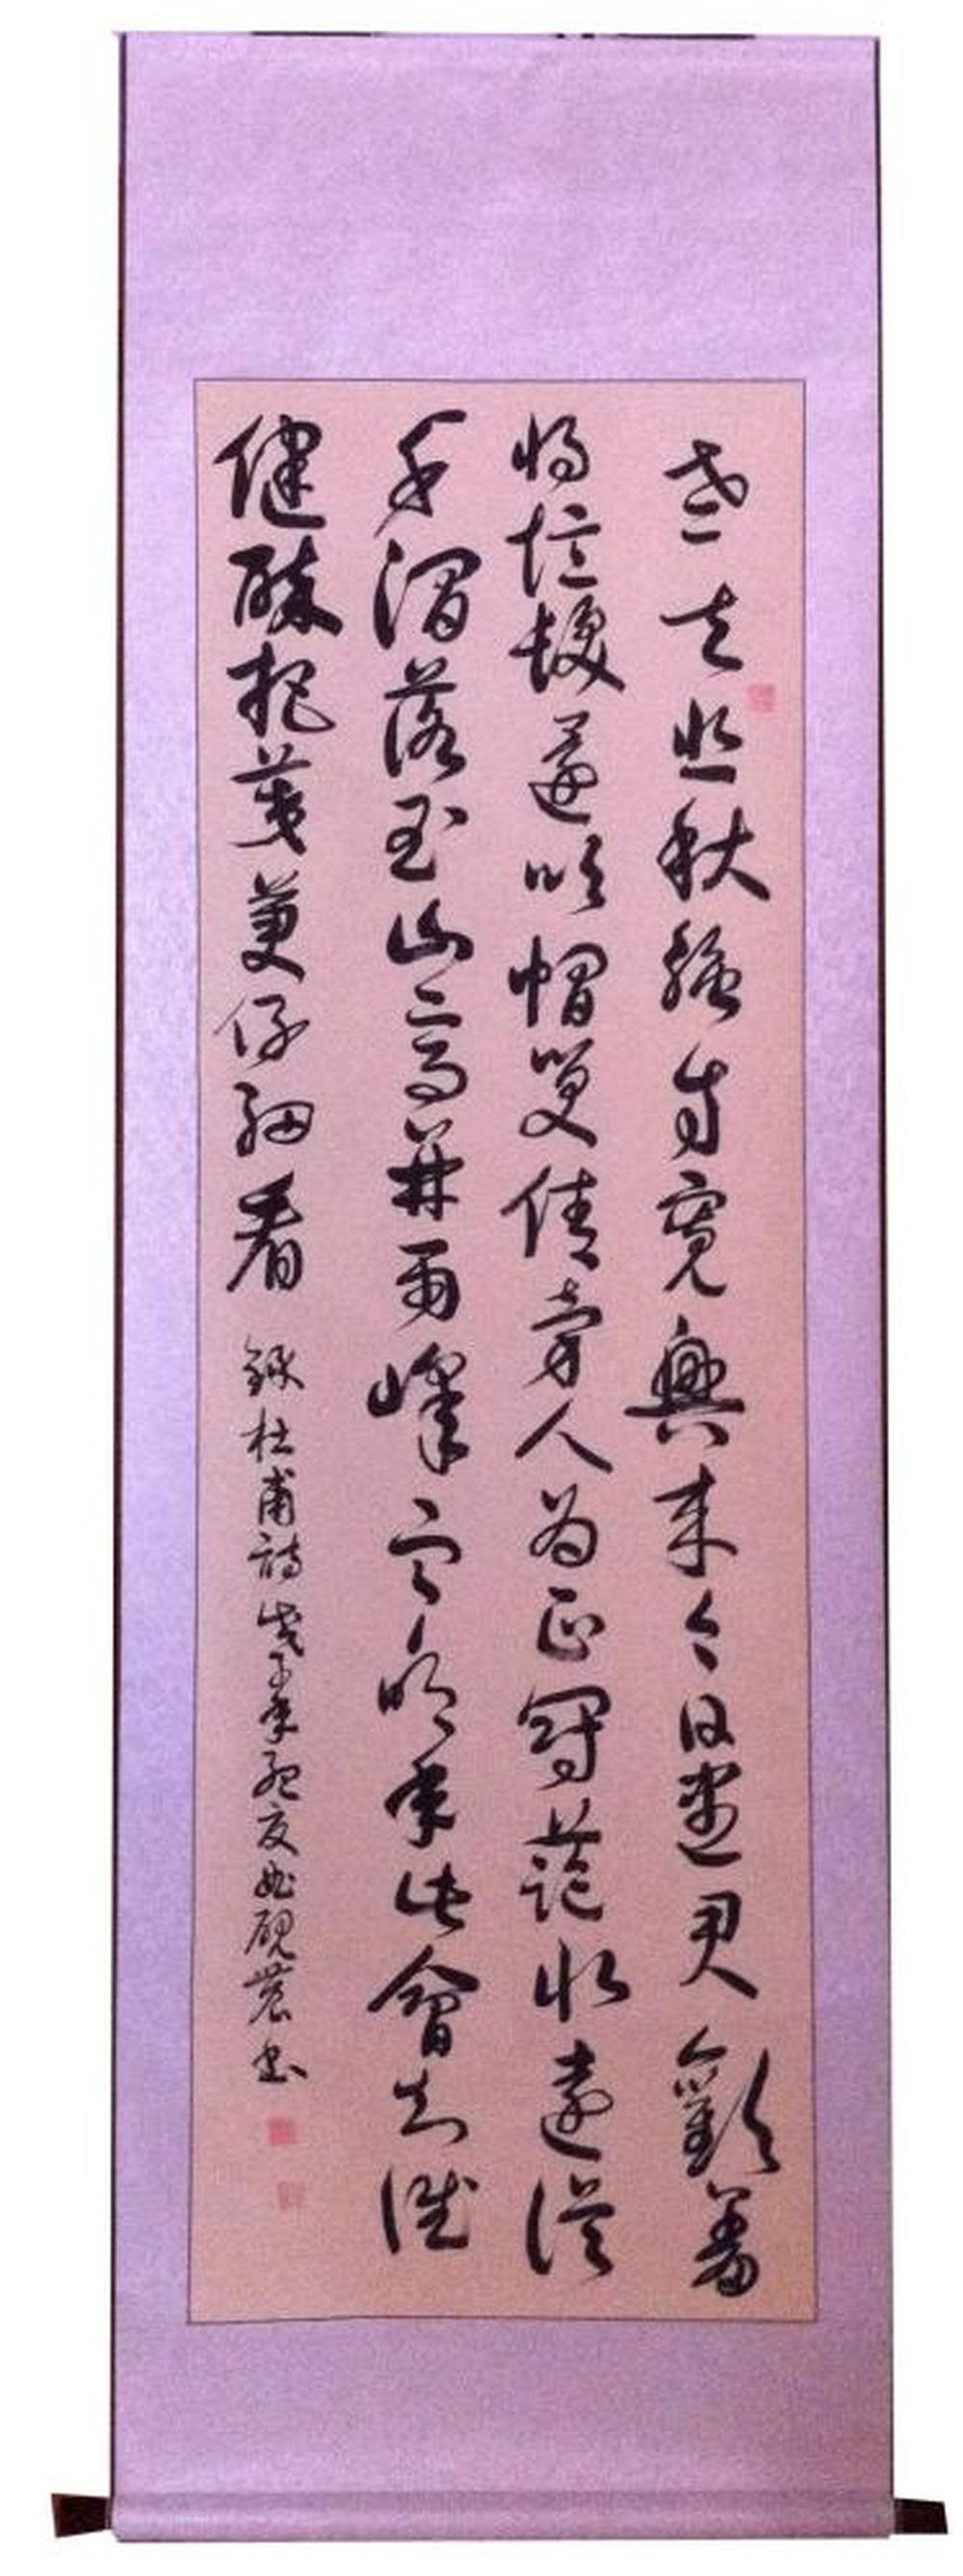 老去悲秋強自寬興來今日盡君歡羞
將短髮還吹帽笑倩旁人為正冠藍水遠從
千澗落玉山高並兩峰寒明年此會知誰
健醉把茱萸仔細看 錄杜甫詩 戊子年夏硯農書